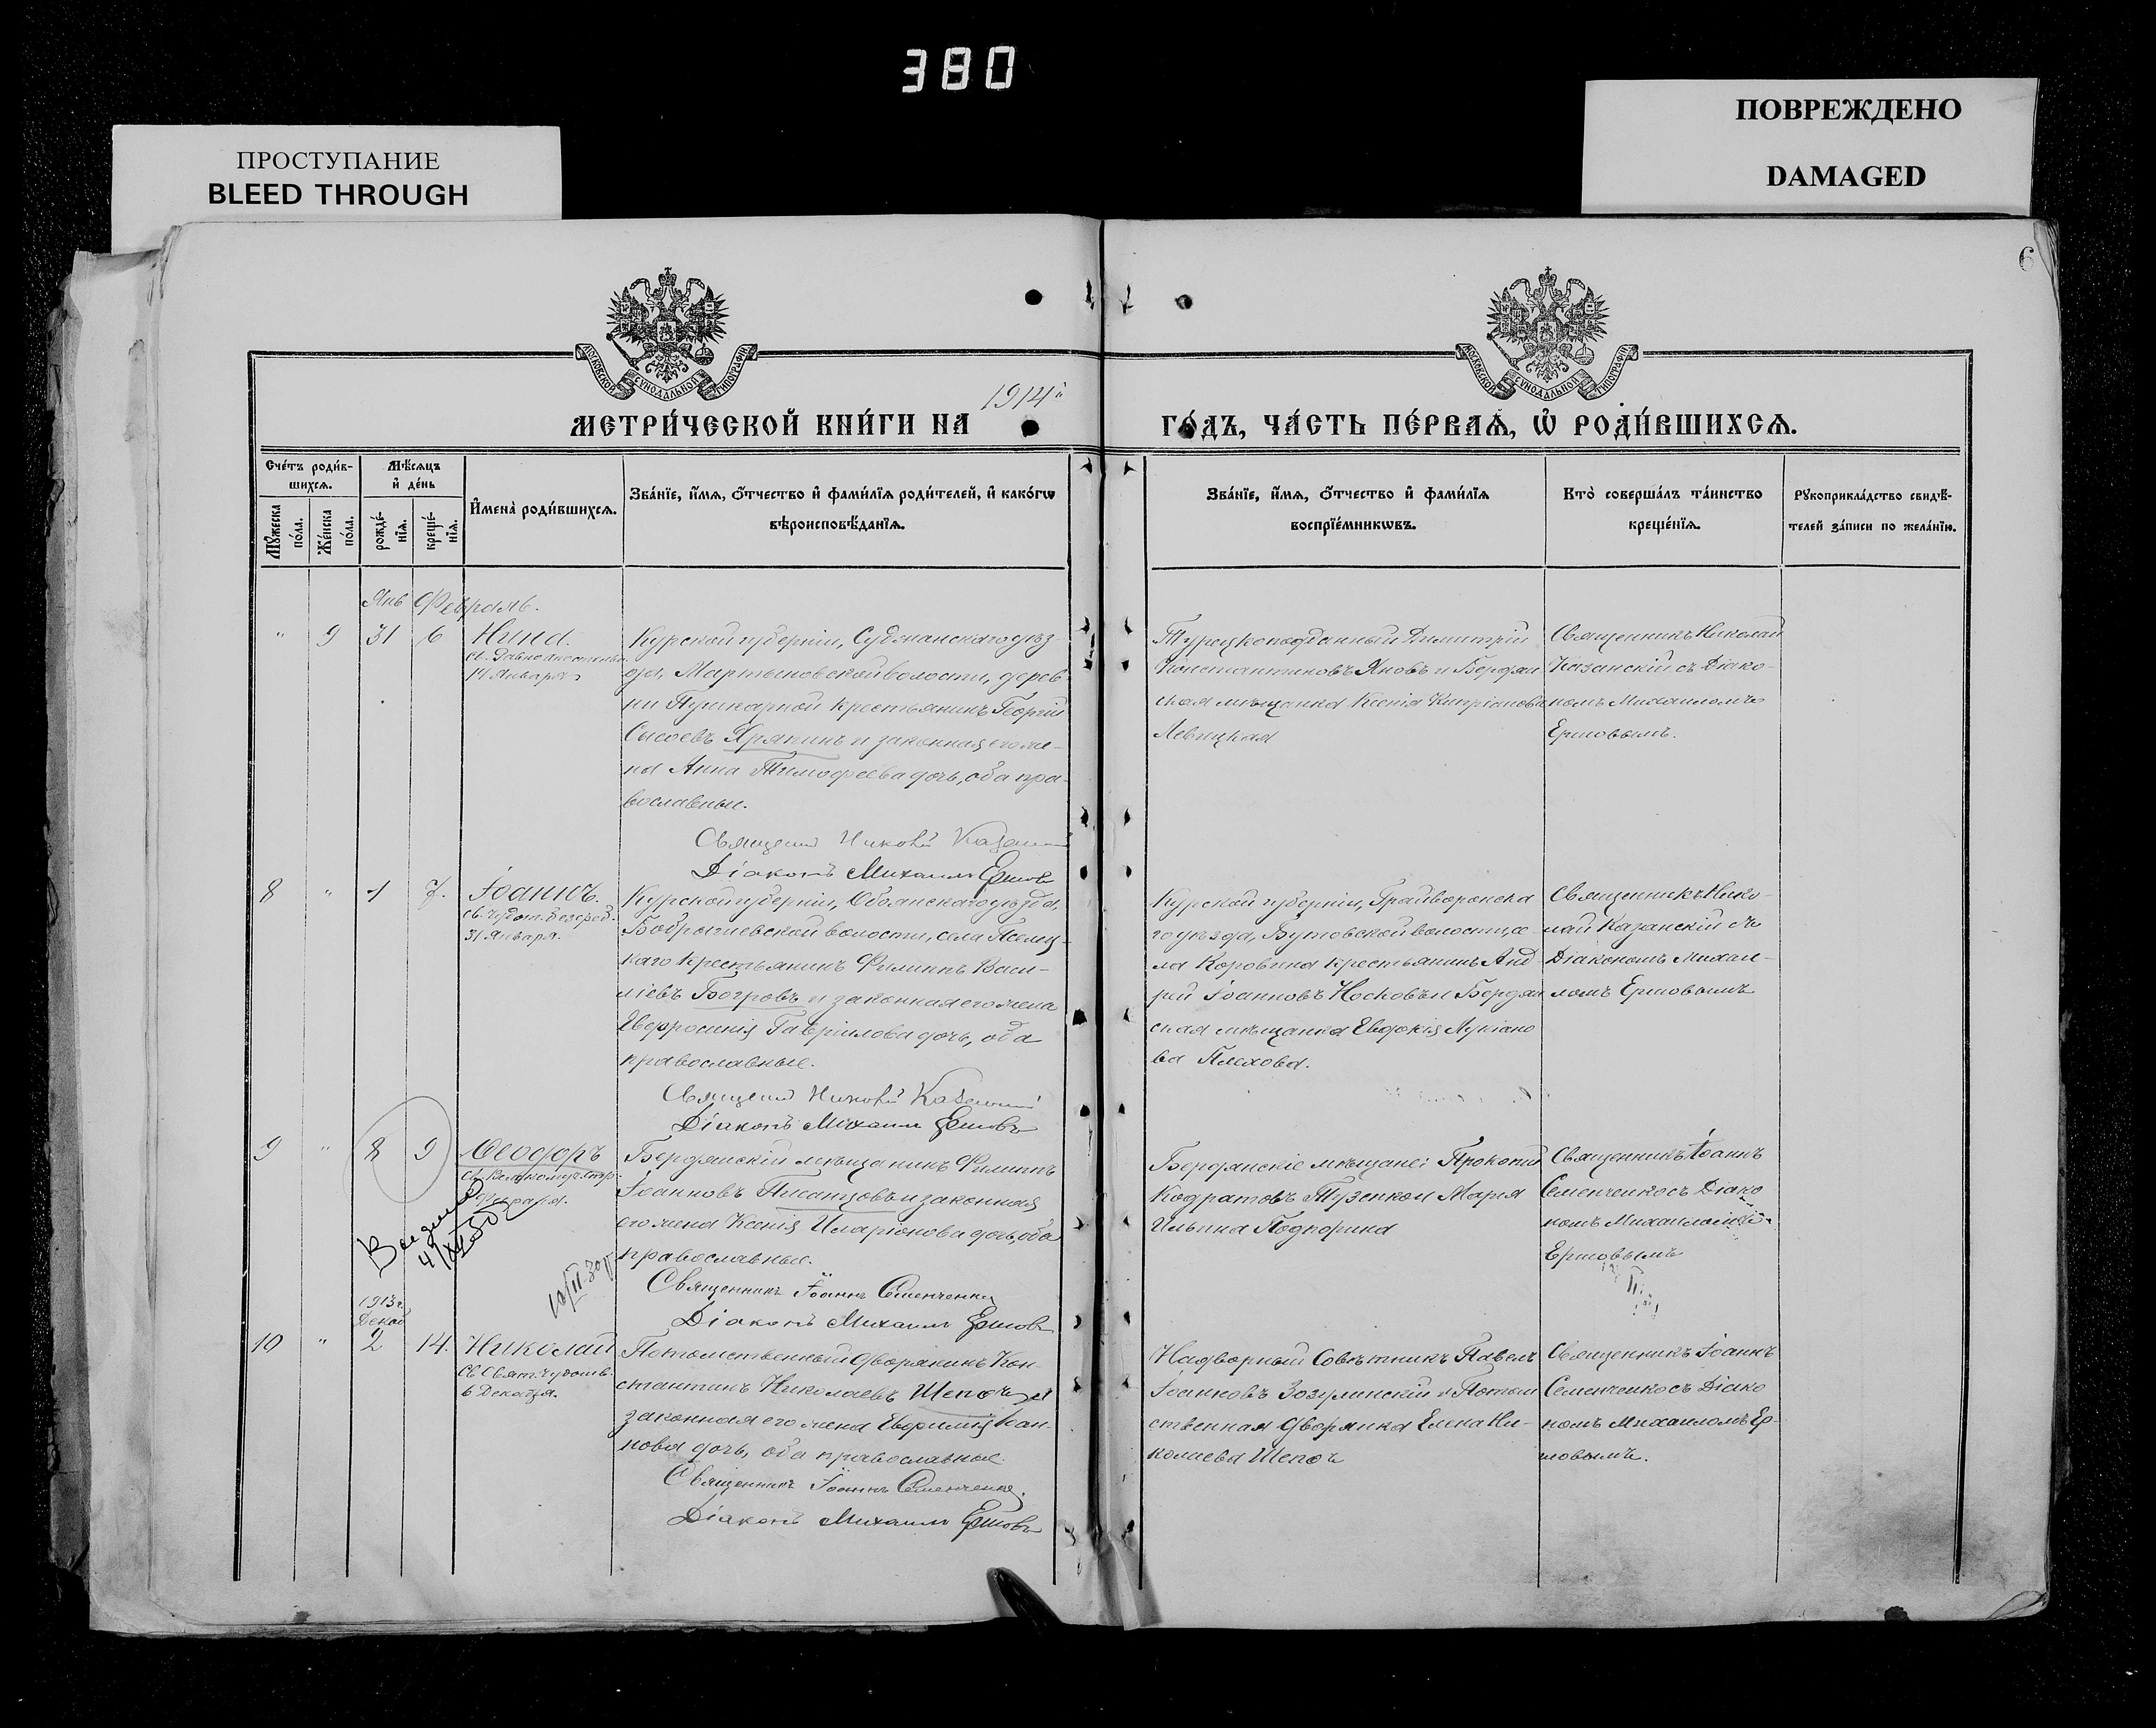 380
ПРОСТУПАНИЕ
BLEED THROUGH
ПОВРЕЖДЕНО
DAMAGED
6
МОСКОВСКОЙ СУНОДАЛЬНОЙ ТИПОГРАФІИ
МОСКОВСКОЙ СУНОДАЛЬНОЙ ТИПОГРАФІИ
МЕТРИ́ЧЕСКОЙ КНИ́ГИ НА 1914й ГО́ДЪ, ЧА́СТЬ ПЕ́РВАѦ, Ѿ РОДИ́ВШИХСѦ.
Сче́тъ роди́в-
шихсѧ.
Мꙋ́жеска по́ла.
Же́нска по́ла.
Мѣ́сѧцъ и҆ де́нь
рожде́-нїѧ.
креще́-нїѧ.
И҆мена̀ роди́вшихсѧ.
Зва́нїе, и҆́мѧ, ѻ҆́тчество и҆ фами́лїѧ роди́телей, и҆ како́гѡ
вѣроисповѣ́данїѧ.
Зва́нїе, и҆́мѧ, ѻ҆́тчество и҆ фами́лїѧ
воспрїе́мникѡвъ.
Кто̀ соверша́лъ та́инство
креще́нїѧ.
Рꙋкоприкла́дство свидѣ́-
телей за́писи по жела́нїю.
Янв Февраль.
" 9 31 6 Нина.
св. Равноапостольн.
14 Января
Курской губерніи, Суджанскаго уѣз
да, Мартыновской волости, дерев
ни Пушкарной крестьянинъ Георгій
Сысоевъ Яряпинъ и законная его же-
на Анна Тимофеева дочь, оба пра-
вославные.
Священн Николай Казанскій
Діаконъ Михаилъ Ершовъ
Турецкоподданный Димитрій
Константиновъ Яновъ и Бердян
ская мѣщанка Ксенія Кипріанова
Левицкая
Священникъ Николай
Казанскій съ Діако-
номъ Михаиломъ
Ершовымъ.
8 " 1 7. Іоаннъ.
св. чудот. безсреб.
31 Января.
Курской губерніи, Обоянскаго уѣзда,
Бобрышевской волости, села Пселец-
каго крестьянинъ Филиппъ Васи-
ліевъ Богровъ и законная его жена
Евфросинія Гавріилова дочь, оба
православные.
Священн Николай Казанскій
Діаконъ Михаилъ Ершовъ
Курской губерніи, Грайворонска
го уѣзда, Бутовской волости, се-
ла Коровина крестьянинъ Анд-
рей Іоанновъ Носковъ и Бердян
ская мѣщанка Евдокія Лукіано
ва Плехова.
Священникъ Нико-
лай Казанскій съ
Діакономъ Михаи-
ломъ Ершовымъ
9 " 8 9 Ѳеодоръ
св. Великомуч. Стр.
8 Февраля.
Бердянскій мѣщанинъ Филиппъ
Іоанновъ Писанцовъ и законная
его жена Ксенія Иларіонова дочь, оба
православные.
Священникъ Іоаннъ Семенченко
Діаконъ Михаилъ Ершовъ
Бердянскіе мѣщане: Прокопій
Кодратовъ Тузенко и Марія
Ильина Подпорина
Священникъ Іоаннъ
Семенченко съ Діако
номъ Михаиломъ
Ершовымъ
1913 г.
Декаб
10 " 2 14. Николай
св. Свят. Чудотв.
6 Декабря.
Потомственный дворянинъ Кон-
стантинъ Николаевъ Шепоч и
законная его жена Евфимія Іоан-
нова дочь, оба православные.
Священникъ Іоаннъ Семенченко.
Діаконъ Михаилъ Ершовъ
Надворный Совѣтникъ Павелъ
Іоанновъ Зозулинскій и Потом
ственная дворянка Елена Ни-
колаева Шепоч
Священникъ Іоаннъ
Семенченко съ Діако
номъ Михаиломъ Ер-
шовымъ.